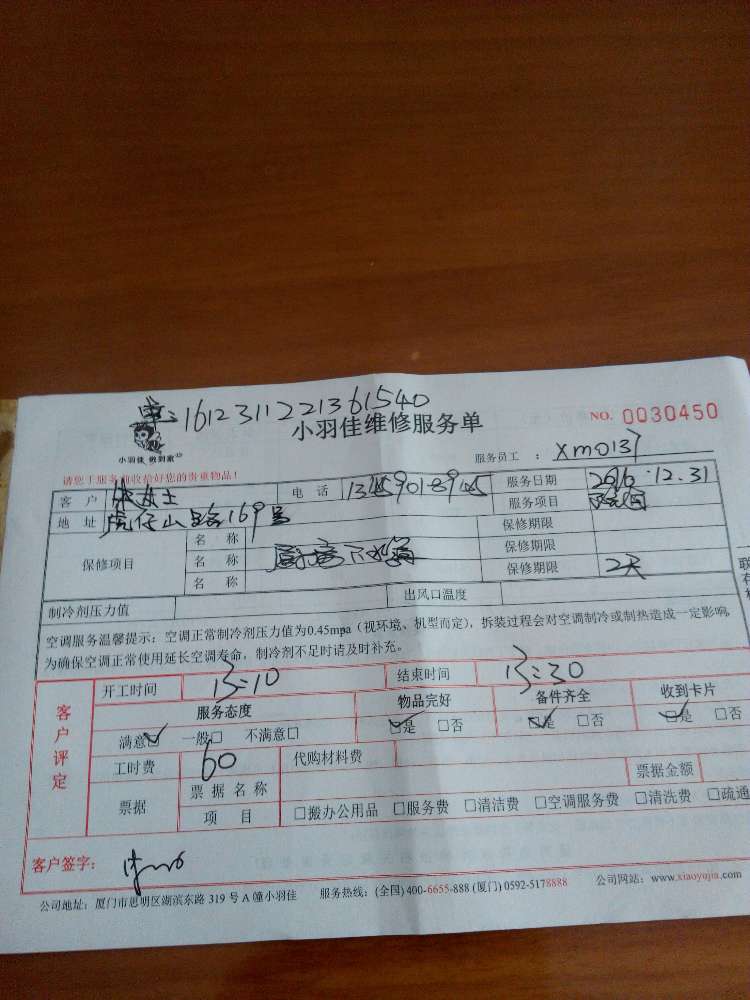 单:1612311221361540
小羽佳维修服务单 NO. 0030450
小羽佳 做到家 服务员工 : xm0137
请您于服务前收拾好您的贵重物品!
客 户 女士 电 话 服务日期 2016.12.31
地 址 虎仔山路169号 服务项目
保修项目 名 称 保修期限
名 称 下水 保修期限
名 称 保修期限 2天
制冷剂压力值 出风口温度
空调服务温馨提示: 空调正常制冷剂压力值为0.45mpa(视环境、机型而定),拆装过程会对空调制冷或制热造成一定影响,
为确保空调正常使用延长空调寿命,制冷剂不足时请及时补充。
客户评定
开工时间 13:10 结束时间 13:30
服务态度 物品完好 备件齐全 收到卡片
满意☑ 一般□ 不满意□ ☑是 □否 ☑是 □否 ☑是 □否
工时费 60 代购材料费
票据 票 据 名 称 票据金额
项 目 □搬办公用品 □服务费 □清洁费 □空调服务费 □清洗费 □疏通
客户签字:
公司地址: 厦门市思明区湖滨东路 319 号 A 幢小羽佳 服务热线: (全国) 400-6655-888 (厦门) 0592-5178888 公司网站: www.xiaoyujia.com